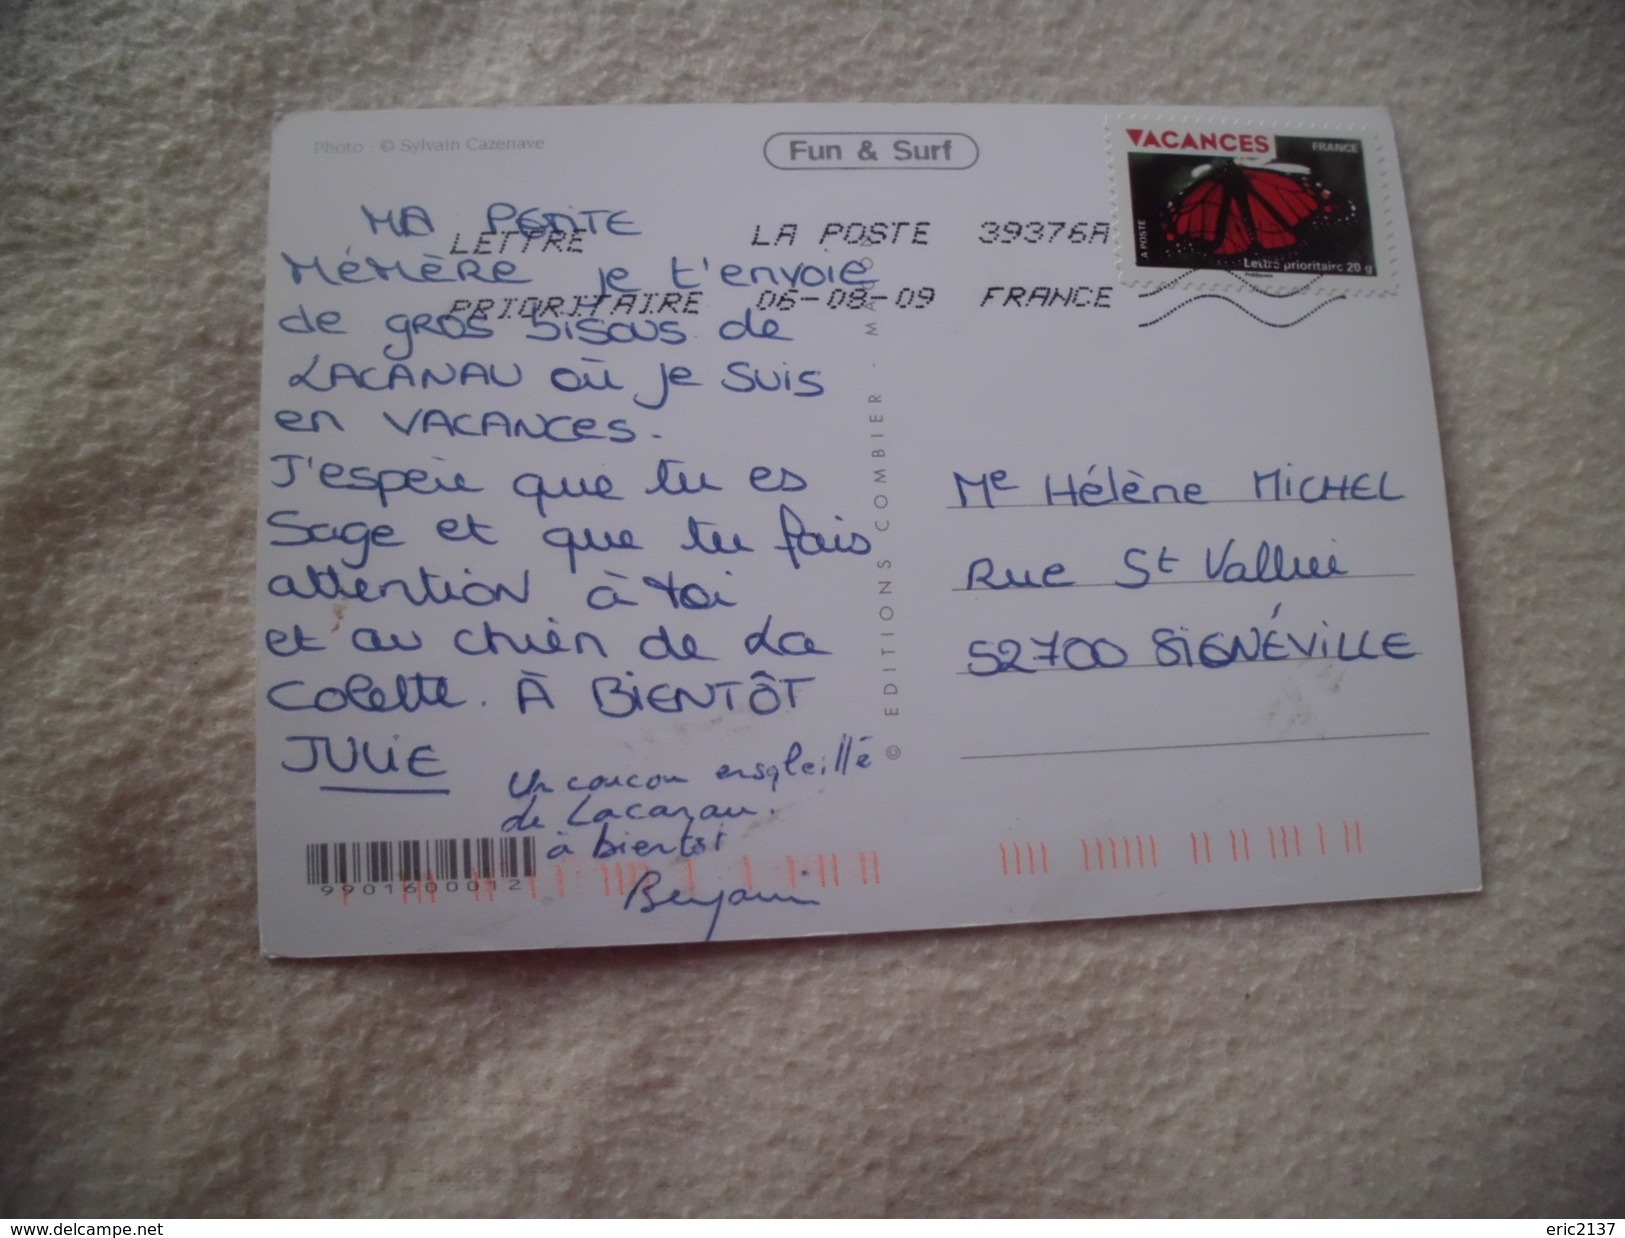 Photo : © Sylvain Cazenave
Fun & Surf
VACANCES
FRANCE
LA POSTE
Lettre prioritaire 20 g
LETTRE
LA POSTE 39376A
PRIORITAIRE 06-08-09 FRANCE
MA PETITE
MÉMÈRE je t'envoie
de gros bisous de
LACANAU où je suis
en VACANCES.
J'espère que tu es
Sage et que tu fais
attention à toi
et au chien de La
Colette. À BIENTÔT
JULIE
Un coucou ensoleillé
de Lacanau.
à bientôt
Benjamin
990160001 2
© EDITIONS COMBIER - MA
Me Hélène MICHEL
Rue St Vallier
52700 SIGNÉVILLE
www.delcampe.net
eric2137